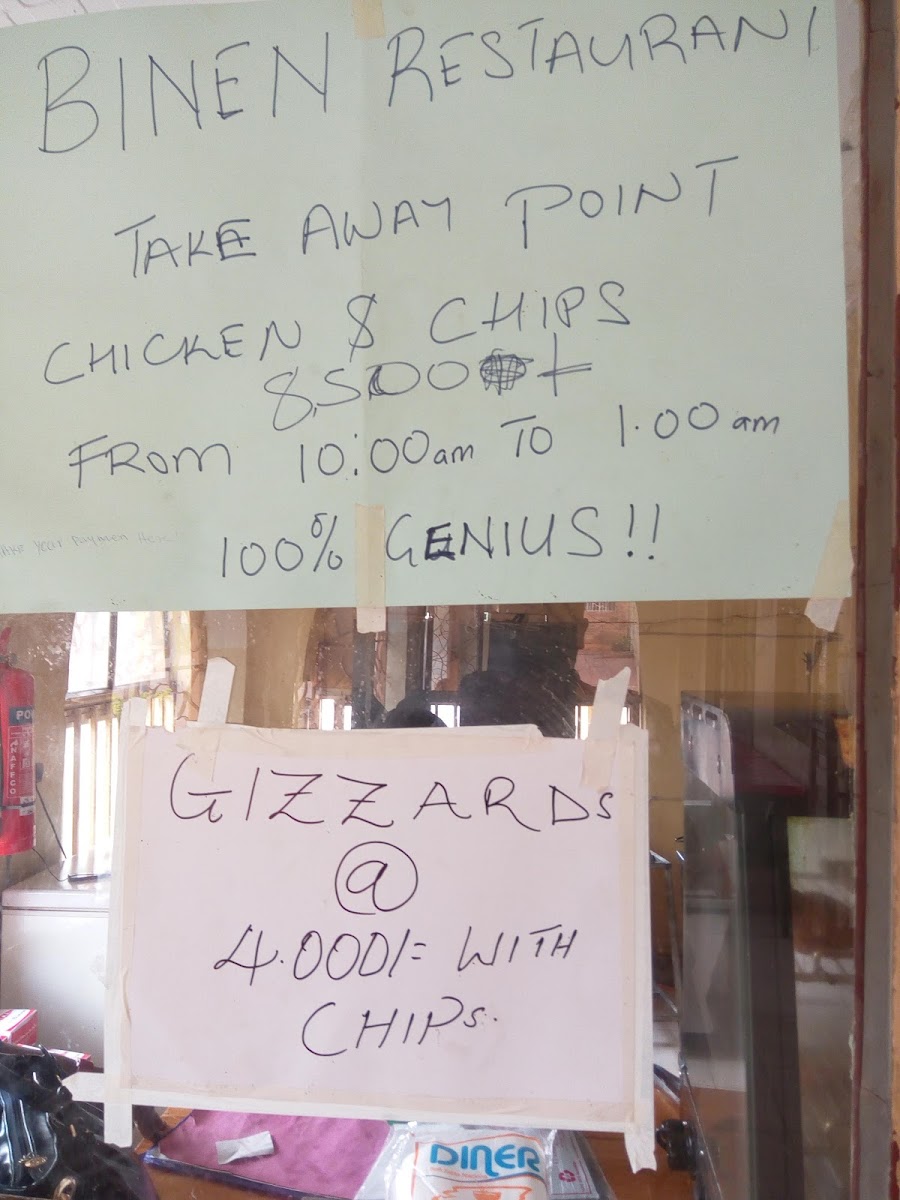 BINEN RESTAURANT
TAKE AWAY POINT
CHICKEN & CHIPS
8,500
FROM 10:00am TO 1.00am
100% GENIUS!!
GIZZARDS
@
4.000/= WITH
CHIPs.
DINER